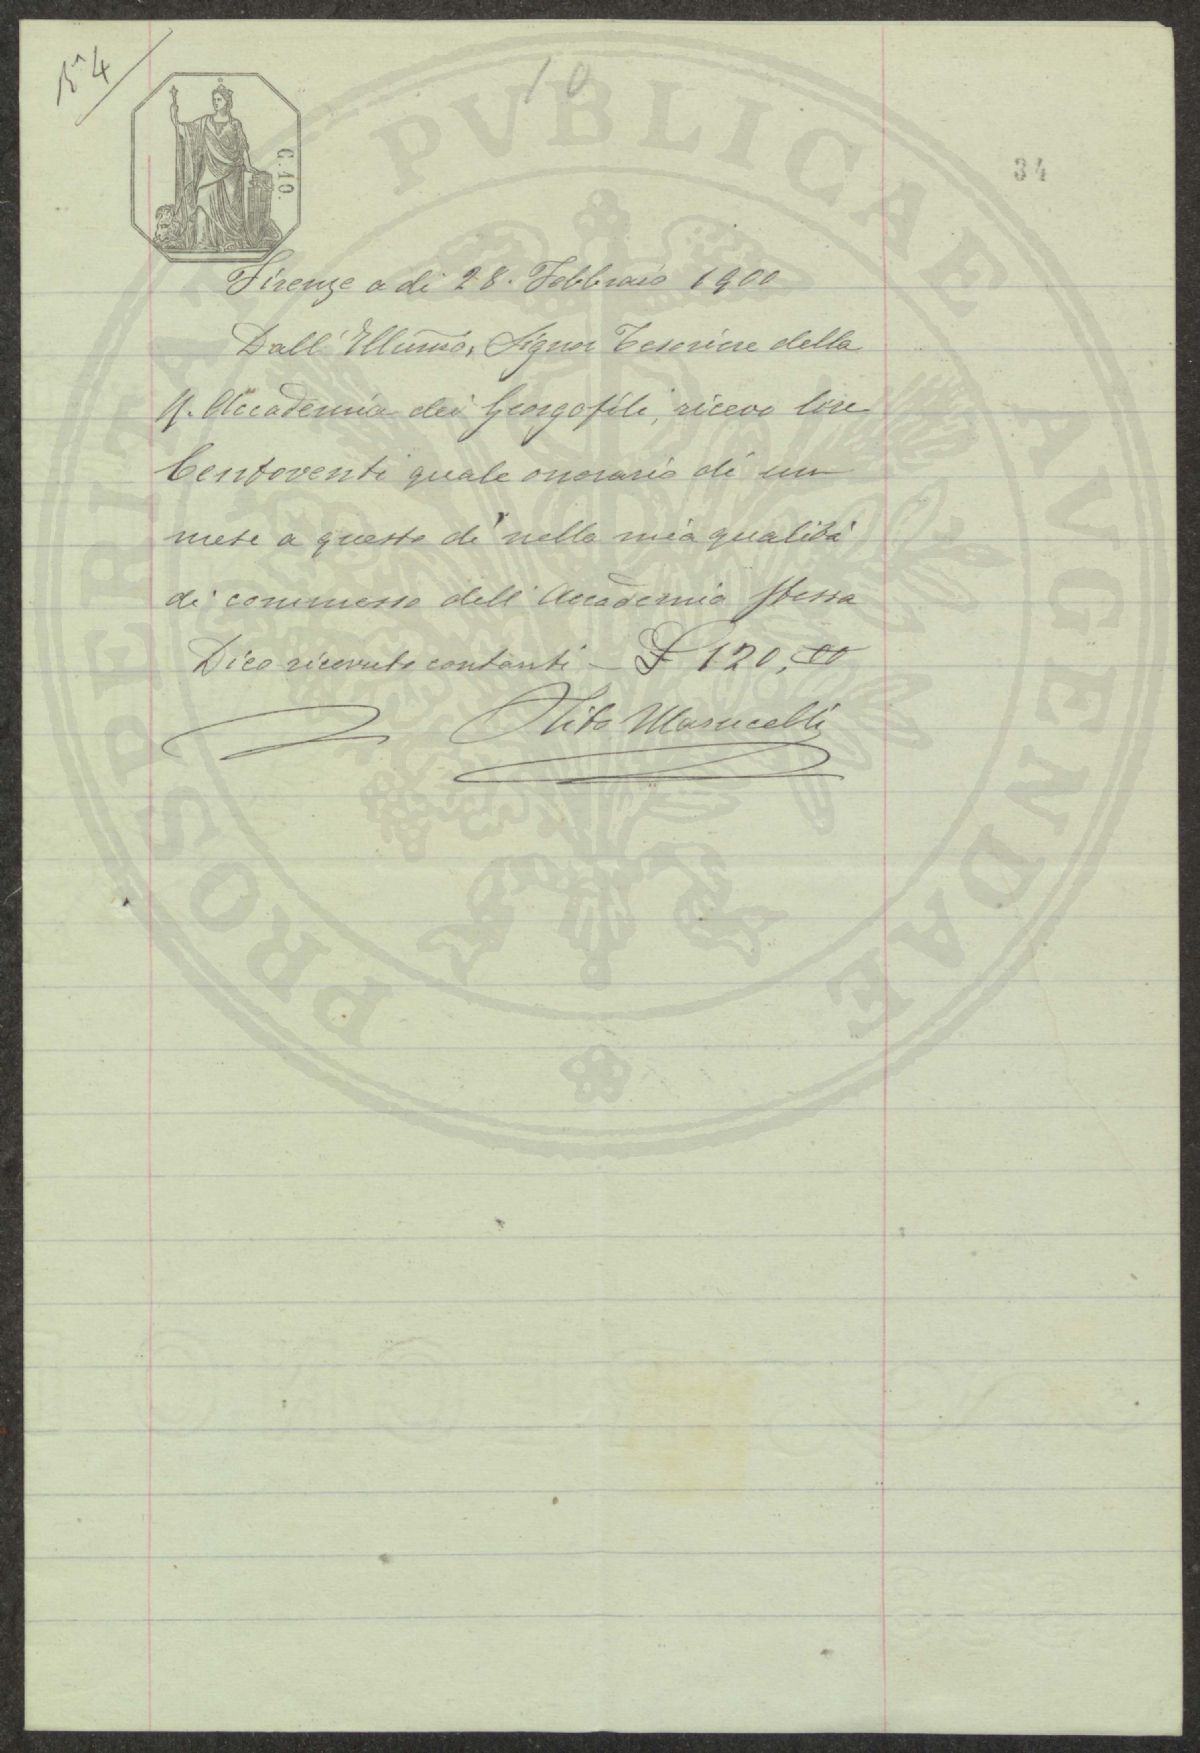 n° 4
10
C. 10.
34
PROSPERITATI PVBLICAE AVGENDAE
Firenze a di 28. Febbraio 1900
Dall' Illumo, Signor Tesoriere della
R. Accademia dei Georgofili, ricevo lire
Centoventi quale onorario di un
mese a questo dì nella mia qualità
di commesso dell'Accademia stessa
Dico ricevute contanti — £ 120,00
Tito Marucelli